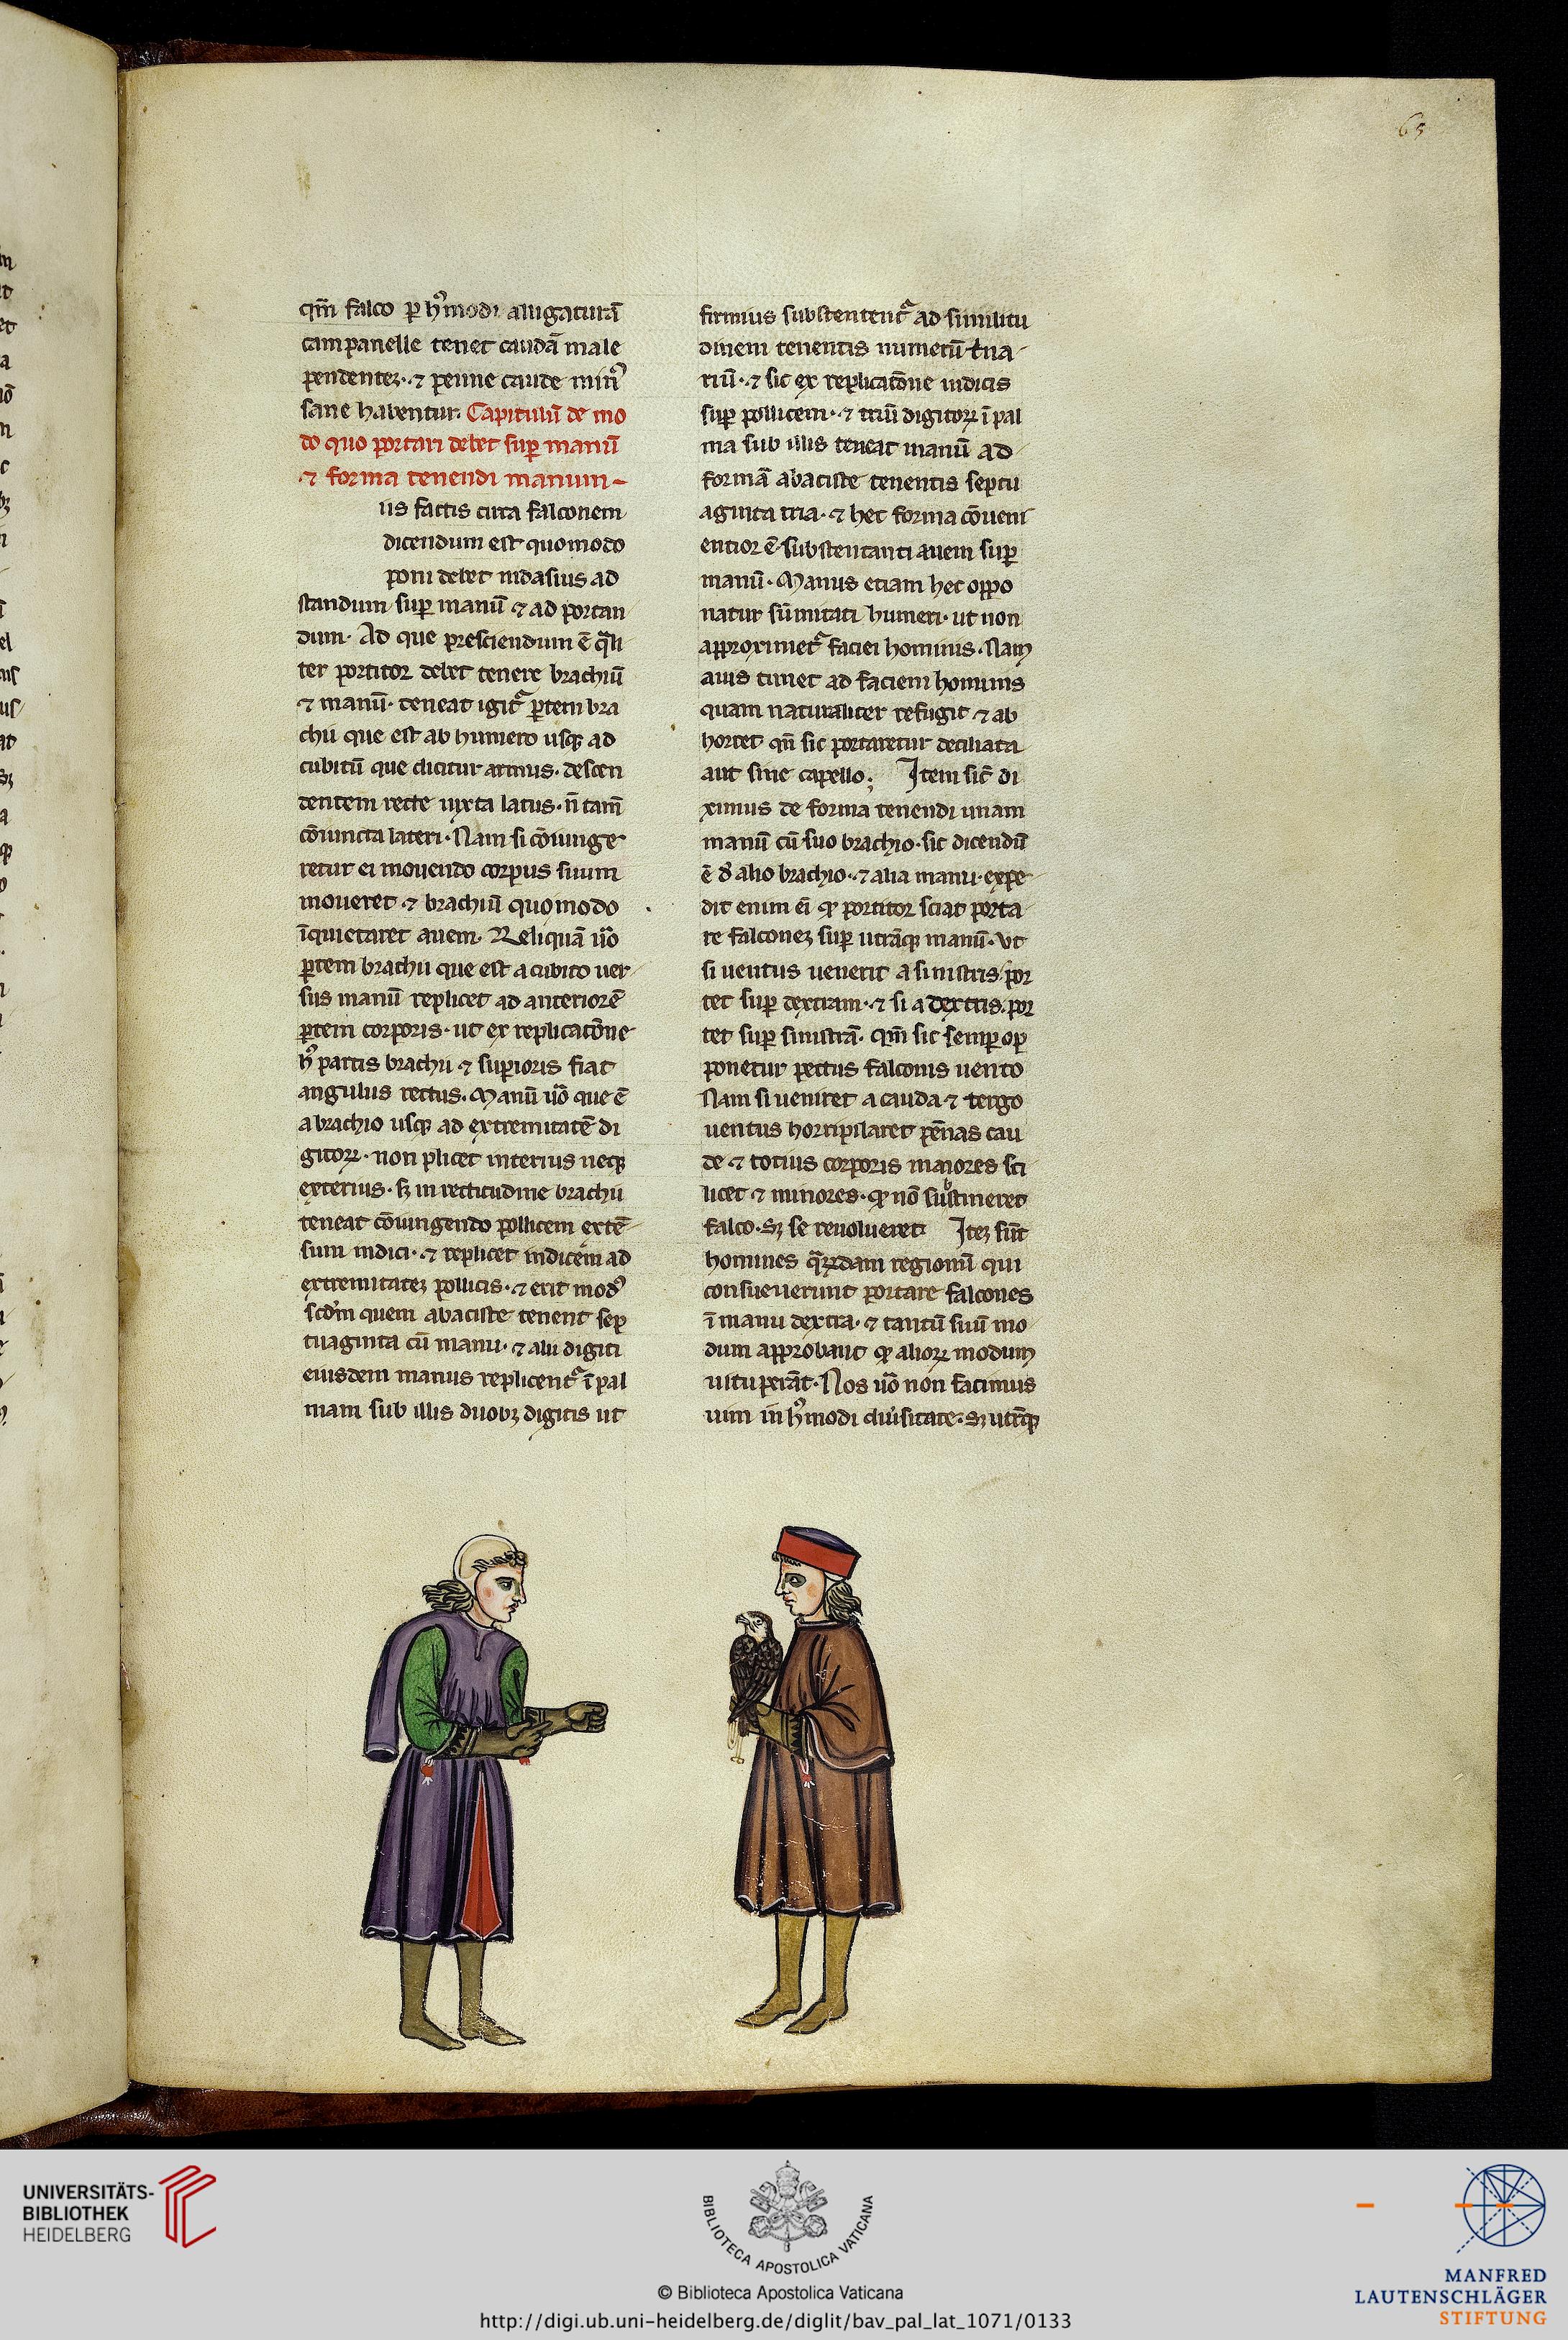 65
qm̄ falco ꝑ hꝰmodi alligaturā
campanelle tenet caudā male
pendentez· ⁊ penne caude minꝰ
sane habentur. Capitulū de mo
do quo portari debet suꝑ manū
⁊ forma tenendi manum–
iis factis circa falconem
dicendum est quomodo
poni debet nidasius ad
standum suꝑ manū ⁊ ad portan
dum· Ad que presciendum ē qͣli
ter portitor debet tenere brachiū
⁊ manū· teneat igit᷑ ꝑtem bra
chii que est ab humero usqꝫ ad
cubitū que dicitur armus· descen
dentem recte iuxta latus· n̄ tam̄
cōiuncta lateri· Nam si cōiunge
retur ei mouendo corpus suum
moueret ⁊ brachiū quomodo
īquietaret auem· Reliquā ůo
ꝑtem brachii que est a cubito uer
sus manū replicet ad anteriorē
ꝑtem corporis· ut ex replicatōne
hꝰ partis brachii ⁊ suꝑioris fiat
angulus rectus· Manū ůo que ē
a brachio usqꝫ ad extremitatē di
gitoꝝ· non plicet interius neqꝫ
exterius· sꝫ in rectitudine brachii
teneat cōiungendo pollicem extē
sum indici· ⁊ replicet indicem ad
extremitatez pollicis· ⁊ erit modꝰ
scd̄m quem abaciste tenent sep
tuaginta cū manu· ⁊ alii digiti
eiusdem manus replicent᷑ ī pal
mam sub illis duobꝫ digitis ut
firmius substentent᷑ ad similitu
dinem tenentis numerū t̄na
riū· ⁊ sic ex replicatōne indicis
suꝑ pollicem· ⁊ triū digitoꝝ ī pal
ma sub illis teneat manū ad
formā abaciste tenentis septu
aginta tria· ⁊ hec forma cōueni
entior ē substentanti auem suꝑ
manū· Manus etiam hec oppo
natur sūmitati humeri· ut non
approximet᷑ faciei hominis· Nam
auis timet ad faciem hominis
quam naturaliter refugit ⁊ ab
horret qn̄ sic portaretur deciliata
aut sine capello; Item sic̄ di
ximus de forma tenendi unam
manū cū suo brachio· sic dicendū
ē đ alio brachio· ⁊ alia manu· expe
dit enim ei ꝙ portitor sciat porta
re falconez suꝑ utrāqꝫ manū· Vt
si uentus uenerit a sinistris· por
tet suꝑ dextram· ⁊ si a dextris· por
tet suꝑ sinistrā· Qm̄ sic semꝑ op
ponetur pectus falconis uento
Nam si ueniret a cauda ⁊ tergo
uentus horripilaret pēnas cau
de ⁊ totius corporis maiores sci
licet ⁊ minores· ꝙ nō sustineret
falco· sꝫ se reuolueret Itez sūt
homines quaꝝdam regionū qui
consueuerunt portare falcones
ī manu dextra· ⁊ tantū suū mo
dum approbant ꝙ alioꝝ modum
uituperāt· Nos ůo non facimus
uim in hꝰmodi diůsitate· sꝫ utrūqꝫ
UNIVERSITÄTS-
BIBLIOTHEK
HEIDELBERG
BIBLIOTECA APOSTOLICA VATICANA
© Biblioteca Apostolica Vaticana
http://digi.ub.uni-heidelberg.de/diglit/bav_pal_lat_1071/0133
MANFRED
LAUTENSCHLÄGER
STIFTUNG